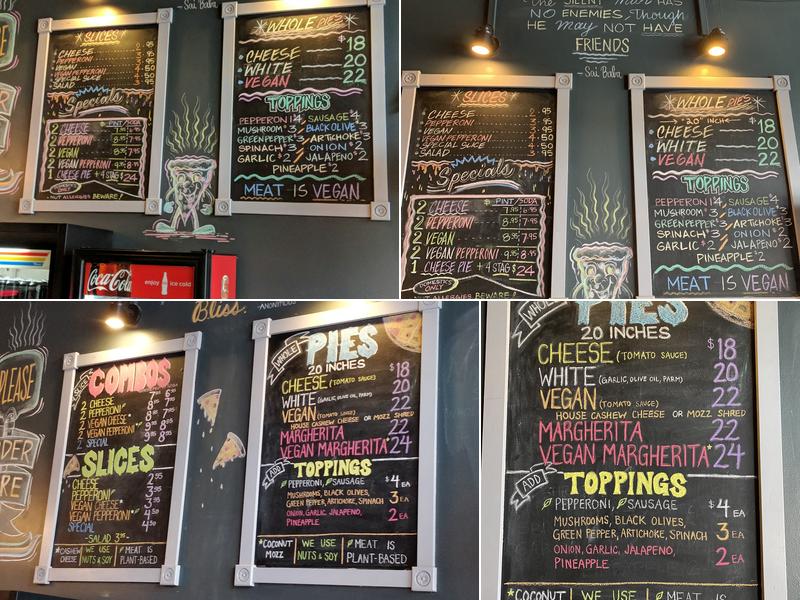 - Sai Baba
SLICES
CHEESE
PEPPERONI
VEGAN
VEGAN PEPPERONI
SPECIAL SLICE
SALAD
Specials
2 CHEESE
2 PEPPERONI
2 VEGAN
2 VEGAN PEPPERONI
1 CHEESE PIE + 4 STAG $24
NUT ALLERGIES BEWARE!
WHOLE PIES
CHEESE $18
WHITE 20
VEGAN 22
TOPPINGS
PEPPERONI 4 SAUSAGE 4
MUSHROOM 3 BLACK OLIVE 3
GREEN PEPPER 3 ARTICHOKE 3
SPINACH 3 ONION 2
GARLIC 2 JALAPEÑO 2
PINEAPPLE 2
MEAT IS VEGAN
Coca-Cola
enjoy ice cold
NO ENEMIES, though
HE may NOT HAVE
FRIENDS
- Sai Baba
SLICES
CHEESE
PEPPERONI
VEGAN
VEGAN PEPPERONI
SPECIAL SLICE
SALAD
Specials
PINT/SODA
2 CHEESE 7.95 6.95
2 PEPPERONI 8.95 7.95
2 VEGAN 8.95 7.95
2 VEGAN PEPPERONI 9.95 8.95
1 CHEESE PIE + 4 STAG $24
DOMESTICS ONLY
NUT ALLERGIES BEWARE!
WHOLE PIES
20" INCH
CHEESE $18
WHITE 20
VEGAN 22
TOPPINGS
PEPPERONI 4 SAUSAGE 4
MUSHROOM 3 BLACK OLIVE 3
GREEN PEPPER 3 ARTICHOKE 3
SPINACH 3 ONION 2
GARLIC 2 JALAPEÑO 2
PINEAPPLE 2
MEAT IS VEGAN
Bliss.
-ANONYMOUS
PLEASE
COMBOS
2 CHEESE
2 PEPPERONI
2 VEGAN CHEESE
2 VEGAN PEPPERONI
2 SPECIAL
SLICES
CHEESE 2.95
PEPPERONI 3.50
VEGAN CHEESE 3.95
VEGAN PEPPERONI 4.50
SPECIAL 4.50
-SALAD 3.95-
*CASHEW CHEESE
WE USE NUTS & SOY
MEAT IS PLANT-BASED
WHOLE PIES
20 INCHES
CHEESE (TOMATO SAUCE) $18
WHITE (GARLIC, OLIVE OIL, PARM) 20
VEGAN (TOMATO SAUCE) 22
HOUSE CASHEW CHEESE OR MOZZ SHRED
MARGHERITA 22
VEGAN MARGHERITA* 24
ADD TOPPINGS
PEPPERONI, SAUSAGE $4 EA
MUSHROOMS, BLACK OLIVES,
GREEN PEPPER, ARTICHOKE, SPINACH 3 EA
ONION, GARLIC, JALAPEÑO,
PINEAPPLE 2 EA
*COCONUT MOZZ
WE USE NUTS & SOY
MEAT IS PLANT-BASED
WHOLE PIES
20 INCHES
CHEESE (TOMATO SAUCE) $18
WHITE (GARLIC, OLIVE OIL, PARM) 20
VEGAN (TOMATO SAUCE) 22
HOUSE CASHEW CHEESE OR MOZZ SHRED
MARGHERITA 22
VEGAN MARGHERITA* 24
ADD TOPPINGS
PEPPERONI, SAUSAGE $4 EA
MUSHROOMS, BLACK OLIVES,
GREEN PEPPER, ARTICHOKE, SPINACH 3 EA
ONION, GARLIC, JALAPEÑO,
PINEAPPLE 2 EA
*COCONUT WE USE MEAT IS